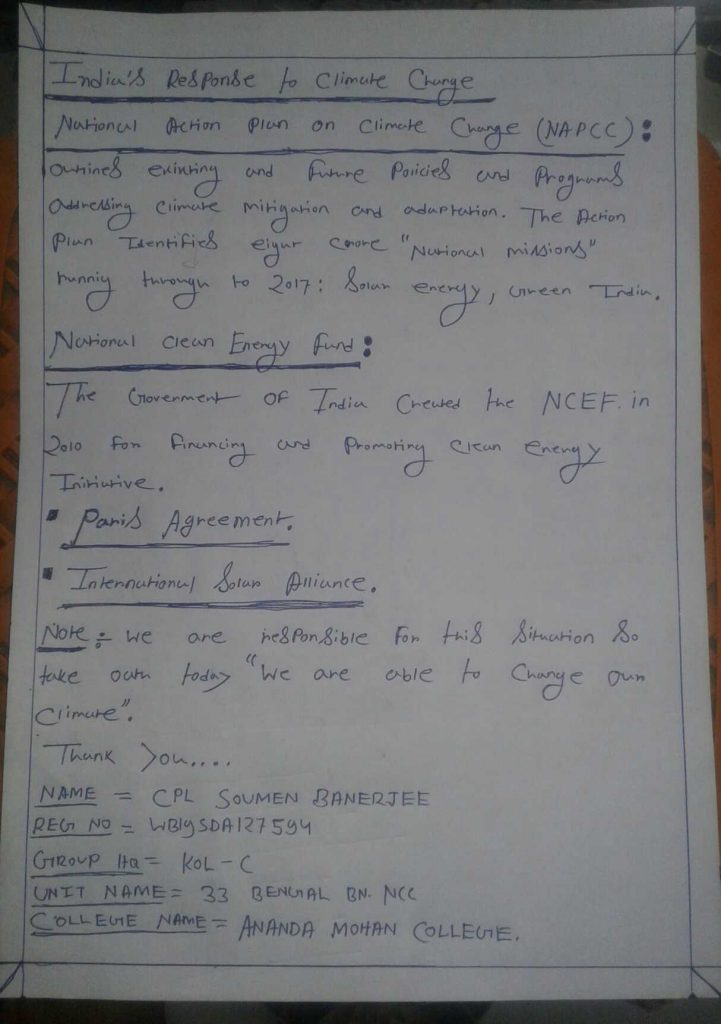 India's Response to Climate Change
National Action Plan on Climate Change (NAPCC):
Outlines existing and Future Policies and Programs
Addressing Climate mitigation and adaptation. The Action
Plan Identifies eight core "National missions"
running through to 2017: Solar energy, Green India.
National Clean Energy Fund:
The Government OF India Created the NCEF. in
2010 For Financing and Promoting Clean Energy
Initiative.
▪ Paris Agreement.
▪ International Solar Alliance.
Note ÷ We are responsible For this Situation So
take oath today "We are able to Change our
Climate".
Thank You....
NAME = CPL SOUMEN BANERJEE
REG NO = WB19SDA127594
GROUP HQ = KOL - C
UNIT NAME = 33 BENGAL BN. NCC
COLLEGE NAME = ANANDA MOHAN COLLEGE.